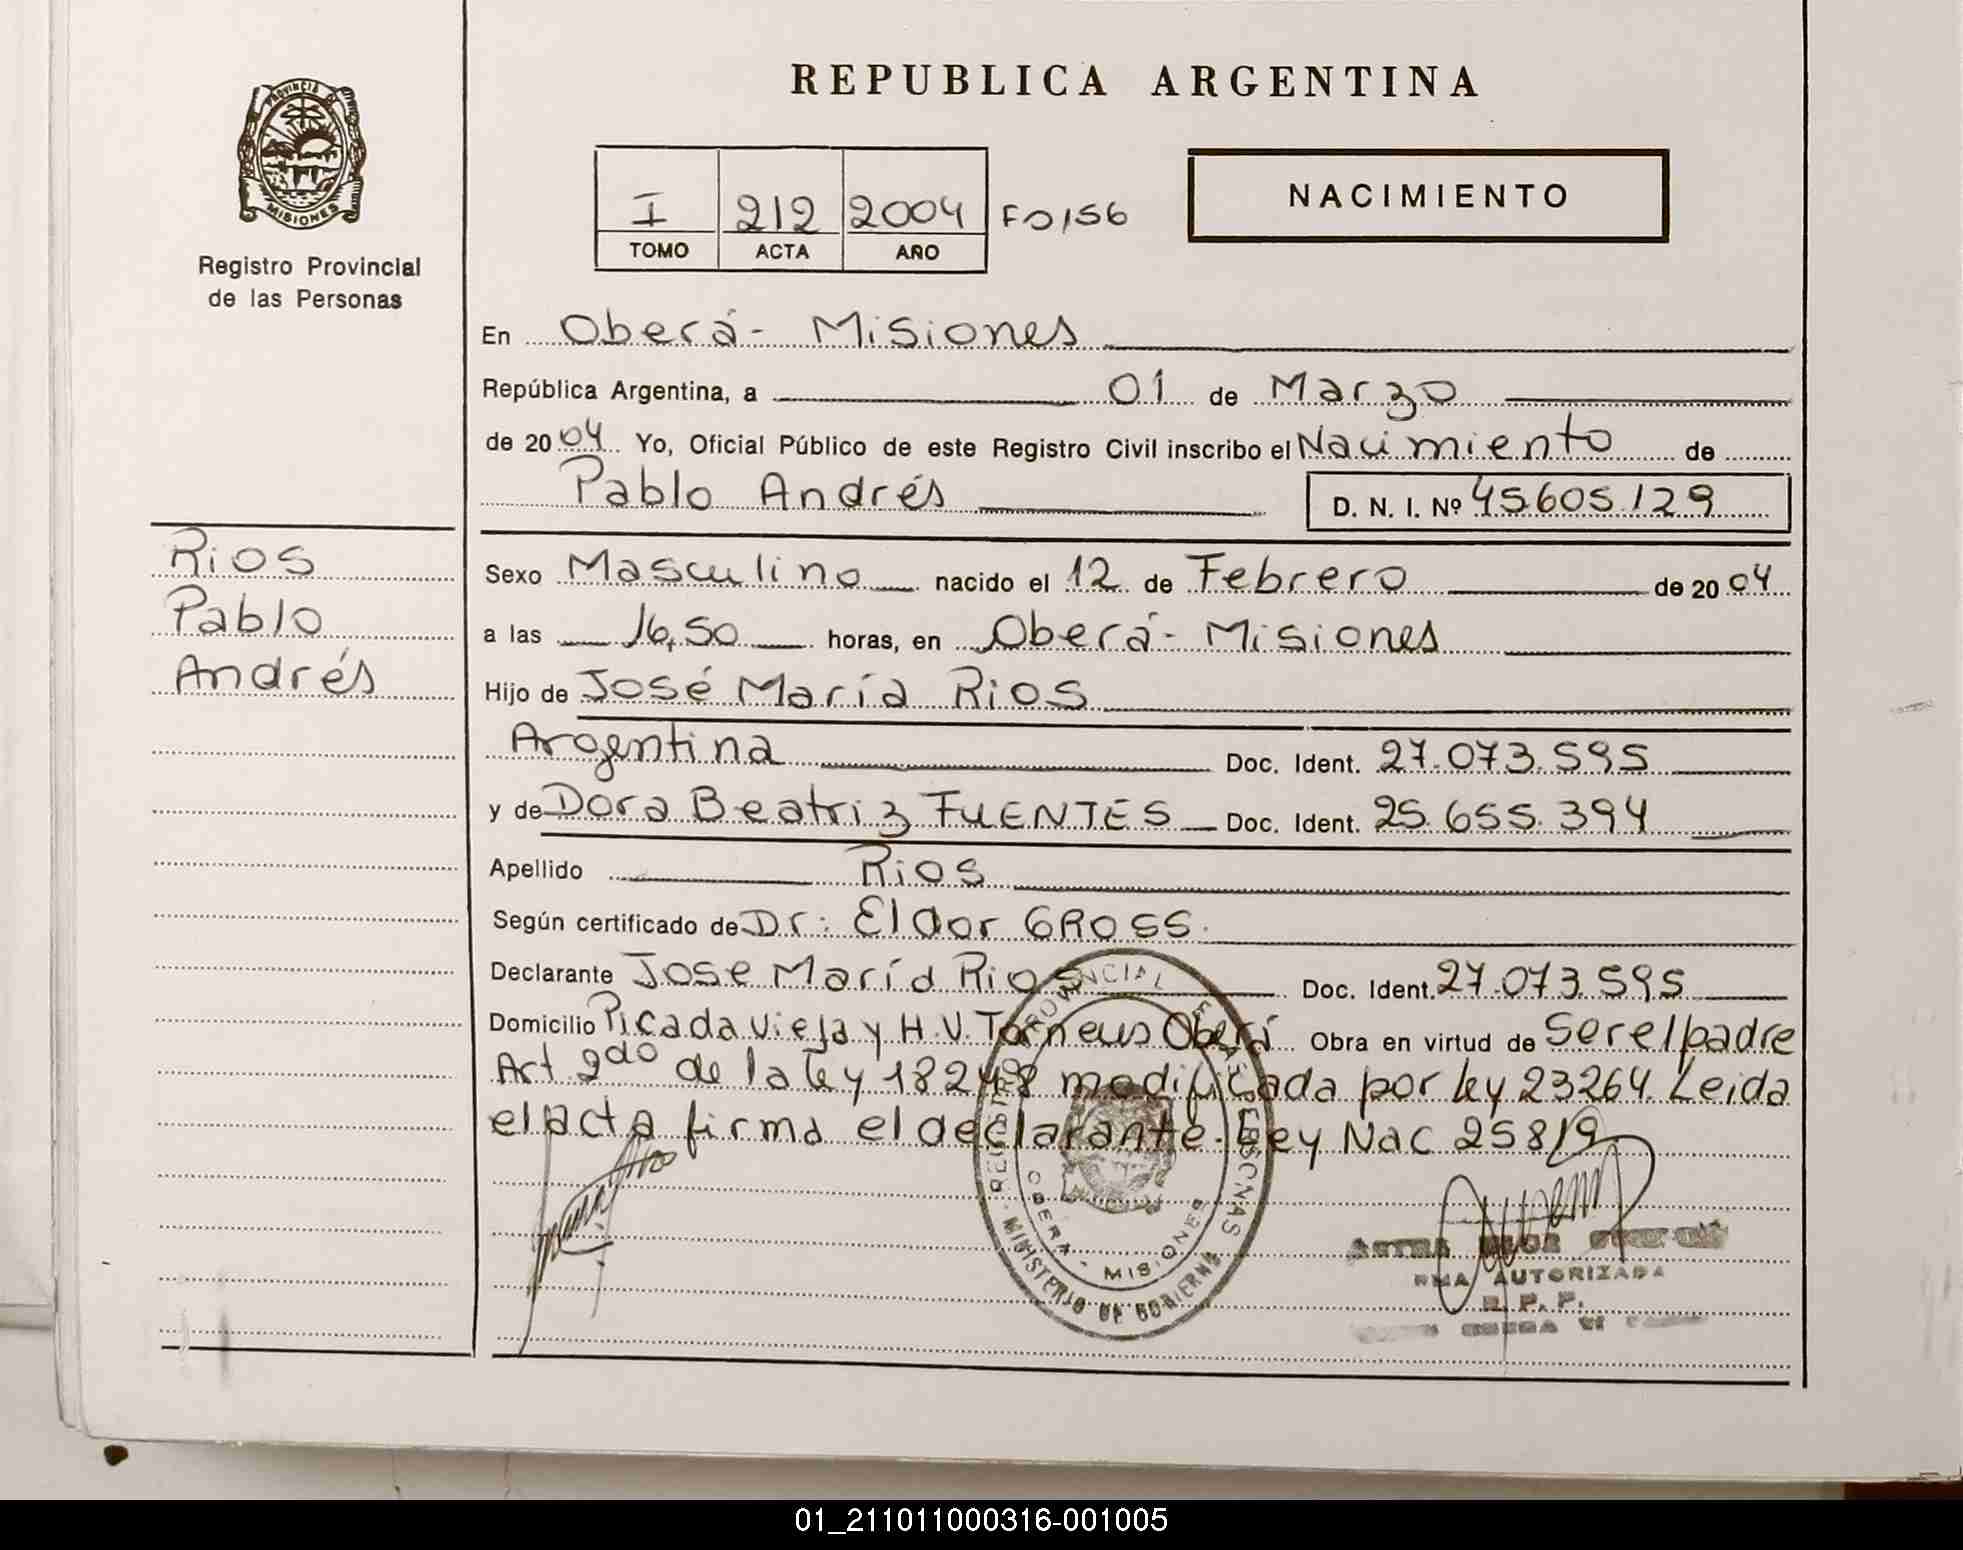 REPUBLICA ARGENTINA
PROVINCIA DE
MISIONES
Registro Provincial
de las Personas
I 212 2004 Fº156
TOMO ACTA AÑO
NACIMIENTO
En Oberá - Misiones
República Argentina, a 01 de Marzo
de 2004 Yo, Oficial Público de este Registro Civil inscribo el Nacimiento de
Pablo Andrés D. N. I. Nº 45.605.129
Rios
Pablo
Andrés
Sexo Masculino nacido el 12 de Febrero de 2004
a las 16,50 horas, en Oberá - Misiones
Hijo de José María Rios
Argentina Doc. Ident. 27.073.595
y de Dora Beatriz FUENTES Doc. Ident. 25.655.394
Apellido Rios
Según certificado de Dr: Eldor GROSS.
Declarante Jose María Rios Doc. Ident. 27.073.595
Domicilio Picada Vieja y H.V. Torneus Oberá Obra en virtud de Ser el padre
Art 2do de la ley 18248 modificada por ley 23264. Leida
el acta firma el declarante. Ley Nac 25819
REGISTRO PROVINCIAL DE LAS PERSONAS
OBERA - MISIONES
MINISTERIO DE GOBIERNO
AUTORIZADA
R. P. P.
01_211011000316-001005